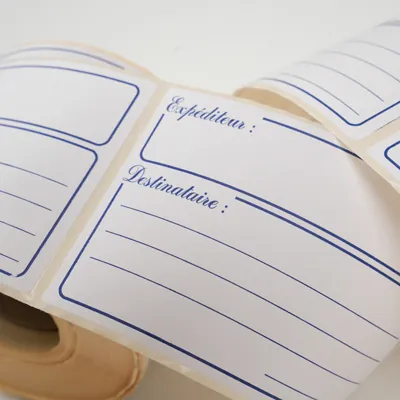 Expéditeur :
Destinataire :